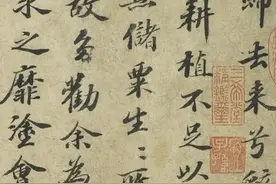 歸去来兮辭
耕植不足以
無儲粟生〻所
故多勸余為
求之靡塗會